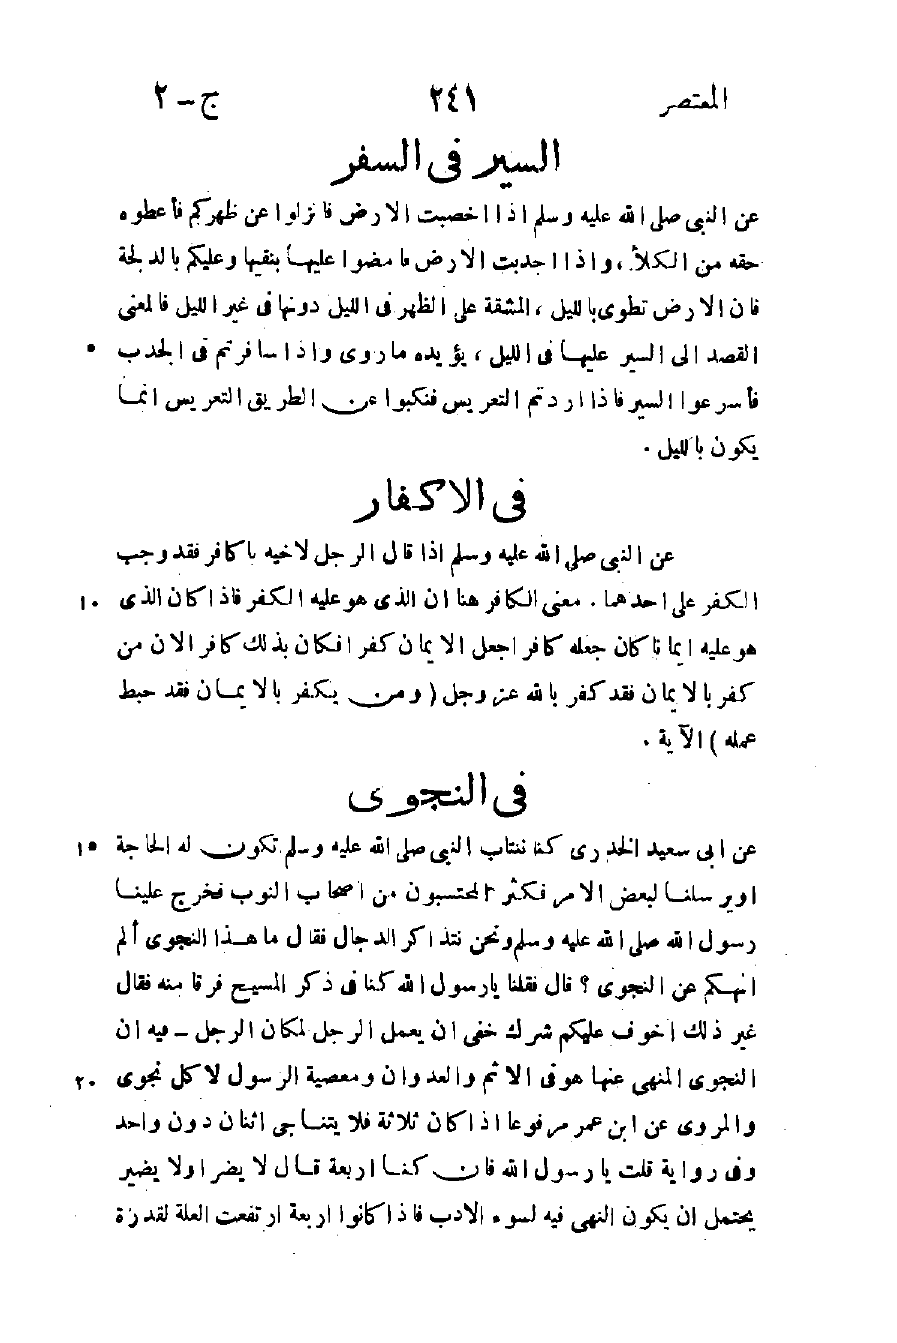 المعتصر ٢٤١ ج - ٢
السير فى السفر
عن النبى صلى الله عليه وسلم اذا اخصبت الارض فانزلوا عن ظهركم فأعطوه
حقه من الكلأ، واذا اجدبت الارض فامضوا عليها بنقيها وعليكم بالدلجة
فان الارض تطوى بالليل، المشقة على الظهر فى الليل دونها فى غير الليل فالمعنى
القصد الى السير عليها فى الليل، يؤيده ماروى واذا سافرتم فى الجدب ٥
فأسرعوا السير فاذا اردتم التعريس فنكبوا عن الطريق التعريس انما
يكون بالليل .
فى الاكفار
عن النبى صلى الله عليه وسلم اذا قال الرجل لاخيه يا كافر فقد وجب
الكفر على احدهما . معنى الكافر هنا ان الذى هو عليه الكفر فاذا كان الذى ١٠
هو عليه ايمانا كان جعله كافرا جعل الايمان كفرا فكان بذلك كافرا لان من
كفر بالايمان فقد كفر بالله عز وجل ( ومن يكفر بالايمان فقد حبط
عمله ) الآية .
فى النجوى
عن ابى سعيد الخدرى كنا ننتاب النبى صلى الله عليه وسلم تكون له الحاجة ١٥
او يرسلنا لبعض الامر فكثر المحتسبون من اصحاب النوب فخرج علينا
رسول الله صلى الله عليه وسلم ونحن نتذاكر الدجال فقال ما هذا النجوى ألم
انهكم عن النجوى ؟ قال فقلنا يارسول الله كنا فى ذكر المسيح فرقا منه فقال
غير ذلك اخوف عليكم شرك خفى ان يعمل الرجل لمكان الرجل - فيه ان
النجوى المنهى عنها هو فى الاثم والعدوان ومعصية الرسول لا كل نجوى ٢٠
والمروى عن ابن عمر مرفوعا اذا كان ثلاثة فلا يتناجى اثنان دون واحد
وفى رواية قلت يا رسول الله فان كنا اربعة قال لا يضر اولا يضير
يحتمل ان يكون النهى فيه لسوء الادب فاذا كانوا اربعة ارتفعت العلة لقدرة